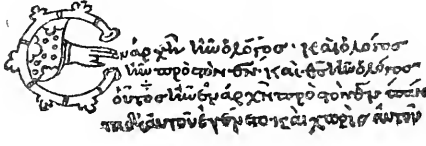 Ἐν ἀρχῇ ἦν ὁ λόγος· καὶ ὁ λόγος
ἦν πρὸς τὸν θ̅ν̅· καὶ θ̅ς̅ ἦν ὁ λόγος
οὗτος ἦν ἐν ἀρχῇ πρὸς τὸν θ̅ν̅ πάν
τα δι' αὐτοῦ ἐγένετο· καὶ χωρὶς αὐτοῦ